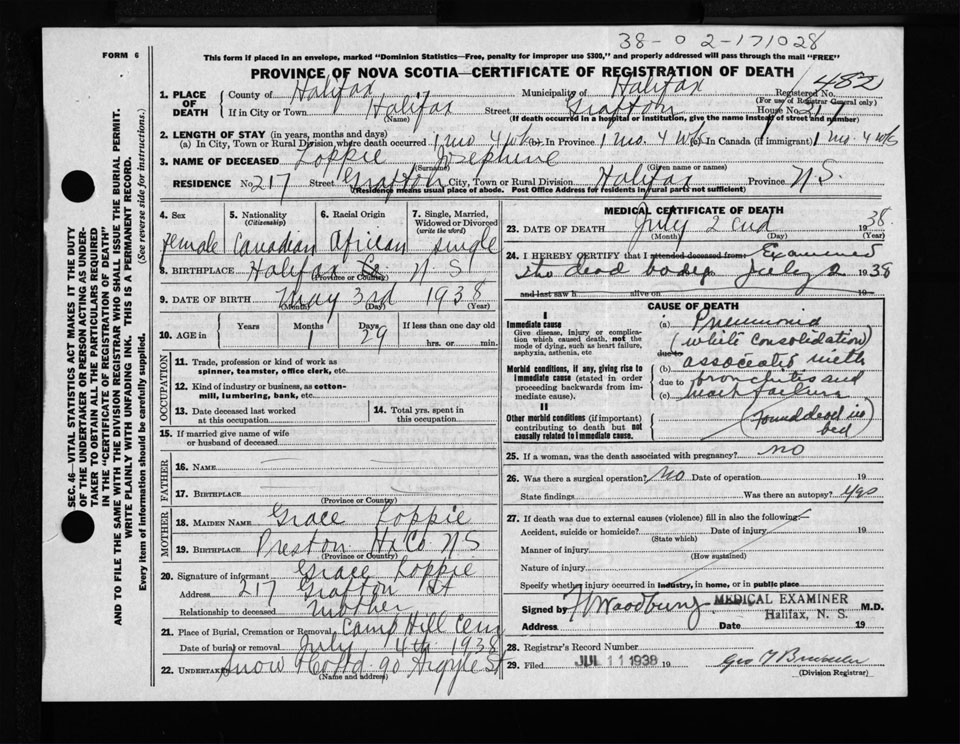 38-02-171028
FORM 6
This form if placed in an envelope, marked "Dominion Statistics—Free, penalty for improper use $300," and properly addressed will pass through the mail "FREE"
PROVINCE OF NOVA SCOTIA—CERTIFICATE OF REGISTRATION OF DEATH
SEC. 46—VITAL STATISTICS ACT MAKES IT THE DUTY
OF THE UNDERTAKER OR PERSON ACTING AS UNDER-
TAKER TO OBTAIN ALL THE PARTICULARS REQUIRED
IN THE "CERTIFICATE OF DEATH"
AND TO FILE THE SAME WITH THE DIVISION REGISTRAR WHO SHALL ISSUE THE BURIAL PERMIT.
WRITE PLAINLY WITH UNFADING INK. THIS IS A PERMANENT RECORD.
Every item of information should be carefully supplied. (See reverse side for instructions.)
1. PLACE OF DEATH
County of Halifax Municipality of Halifax Registered No. 482
(For use of Registrar General only)
If in City or Town Halifax Street Grafton House No. 217
(Name) (If death occurred in a hospital or institution, give the name instead of street and number)
2. LENGTH OF STAY (in years, months and days)
(a) In City, Town or Rural Division where death occurred 1 mo 4 wks (b) In Province 1 mo. 4 wks (c) In Canada (if immigrant) 1 mo 4 wks
3. NAME OF DECEASED Loppie Josephine
(Surname) (Given name or names)
RESIDENCE No. 217 Street Grafton City, Town or Rural Division Halifax Province N.S.
(Residence means usual place of abode. Post Office Address for residents in rural parts not sufficient)
4. Sex female
5. Nationality (Citizenship) Canadian
6. Racial Origin African
7. Single, Married, Widowed or Divorced (write the word) single
8. BIRTHPLACE Halifax Co N S
(Province or Country)
9. DATE OF BIRTH May 3rd 1938
(Month) (Day) (Year)
10. AGE in Years Months 1 Days 29 If less than one day old
hrs. or min.
OCCUPATION
11. Trade, profession or kind of work as
spinner, teamster, office clerk, etc.
12. Kind of industry or business, as cotton-
mill, lumbering, bank, etc.
13. Date deceased last worked
at this occupation
14. Total yrs. spent in
this occupation
15. If married give name of wife
or husband of deceased
FATHER
16. NAME
17. BIRTHPLACE
(Province or Country)
MOTHER
18. MAIDEN NAME Grace Loppie
19. BIRTHPLACE Preston Hx Co NS
(Province or Country)
20. Signature of informant Grace Loppie
Address 217 Grafton St
Relationship to deceased mother
21. Place of Burial, Cremation or Removal Camp Hill Cem
Date of burial or removal July 4th 1938
22. UNDERTAKER Snow & Co Ltd 90 Argyle St
(Name and address)
MEDICAL CERTIFICATE OF DEATH
23. DATE OF DEATH July 2nd 1938
(Month) (Day) (Year)
24. I HEREBY CERTIFY that I attended deceased from: Examined
the dead body July 2 1938
and last saw h alive on 19
CAUSE OF DEATH
I
Immediate cause
Give disease, injury or complica-
tion which caused death, not the
mode of dying, such as heart failure,
asphyxia, asthenia, etc
Morbid conditions, if any, giving rise to
immediate cause (stated in order
proceeding backwards from im-
mediate cause).
II
Other morbid conditions (if important)
contributing to death but not
causally related to immediate cause.
(a) Pneumonia
(white consolidation)
due to
(b) associated with
due to bronchitis and
(c) heart failure
(Found dead in
bed)
25. If a woman, was the death associated with pregnancy? no
26. Was there a surgical operation? No Date of operation 19
State findings Was there an autopsy? yes
27. If death was due to external causes (violence) fill in also the following:—
Accident, suicide or homicide? Date of injury 19
(State which)
Manner of injury
(How sustained)
Nature of injury
Specify whether injury occurred in industry, in home, or in public place
Signed by Woodbury MEDICAL EXAMINER M.D.
Halifax, N. S.
Address Date 19
28. Registrar's Record Number
29. Filed JUL 11 1938 19 Geo
(Division Registrar)